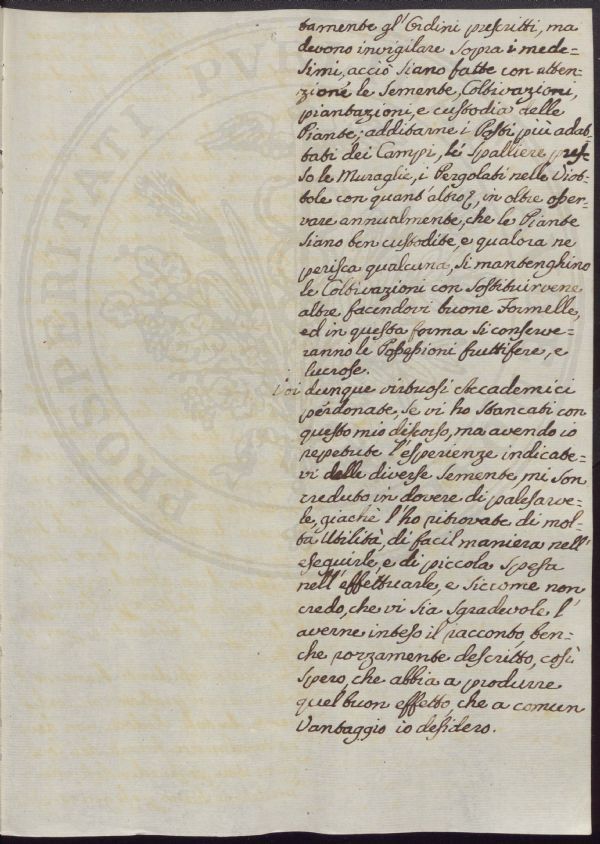 tamente gl'Ordini prescritti, ma
devono invigilare sopra i mede=
simi, acciò siano fatte con atten=
zione le Semente, Coltivazioni,
piantazioni, e custodia delle
Piante; additarne i Posti più adat
tati dei Campi, le Spalliere pres=
so le Muraglie, i Pergolati nelle Viot=
tole con quant'altro, in oltre osser=
vare annualmente, che le Piante
siano ben custodite, e qualora ne
perisca qualcuna, si mantenghino
le Coltivazioni con sostituirvene
altre facendovi buone Formelle,
ed in questa forma si conserve=
ranno le Possessioni fruttifere, e
lucrose.
Voi dunque virtuosi Accademici
perdonate, se vi ho stancati con
questo mio discorso, ma avendo io
repetute l'esperienze indicate=
vi delle diverse semente, mi son
creduto in dovere di palesarve=
le, giachè l'ho ritrovate di mol=
ta Utilità, di facil maniera nell'
eseguirle, e di piccola spesa
nell'effettuarle, e siccome non
credo, che vi sia sgradevole l'
averne inteso il racconto, ben=
che rozzamente descritto, così
spero, che abbia a produrre
quel buon effetto, che a comun
Vantaggio io desidero.
PROSPERITATI PVB